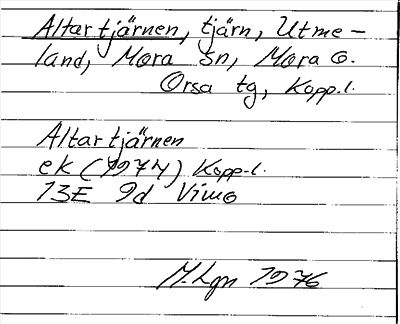 Altartjärnen, tjärn, Utme-
land, Mora sn, Mora o.
Orsa tg, Kopp.l.
Altartjärnen
ek (1974) Kopp.l.
13E 9d Vimo
M.Lgn 1976